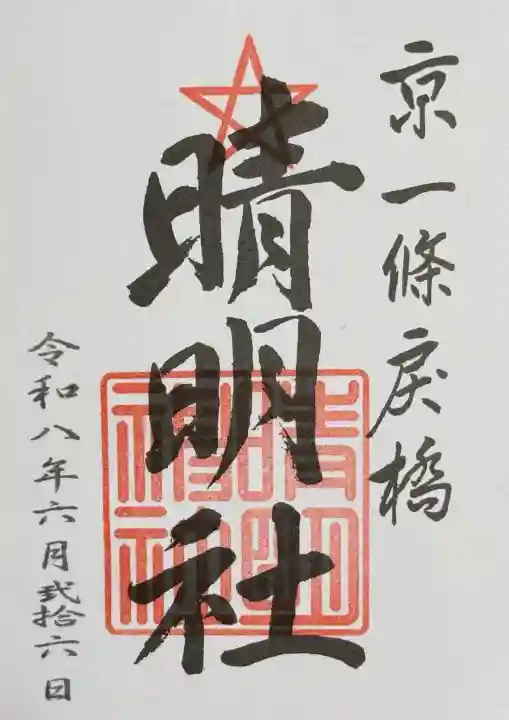 京一條戻橋
晴明社
晴明神社
令和八年六月弐拾六日